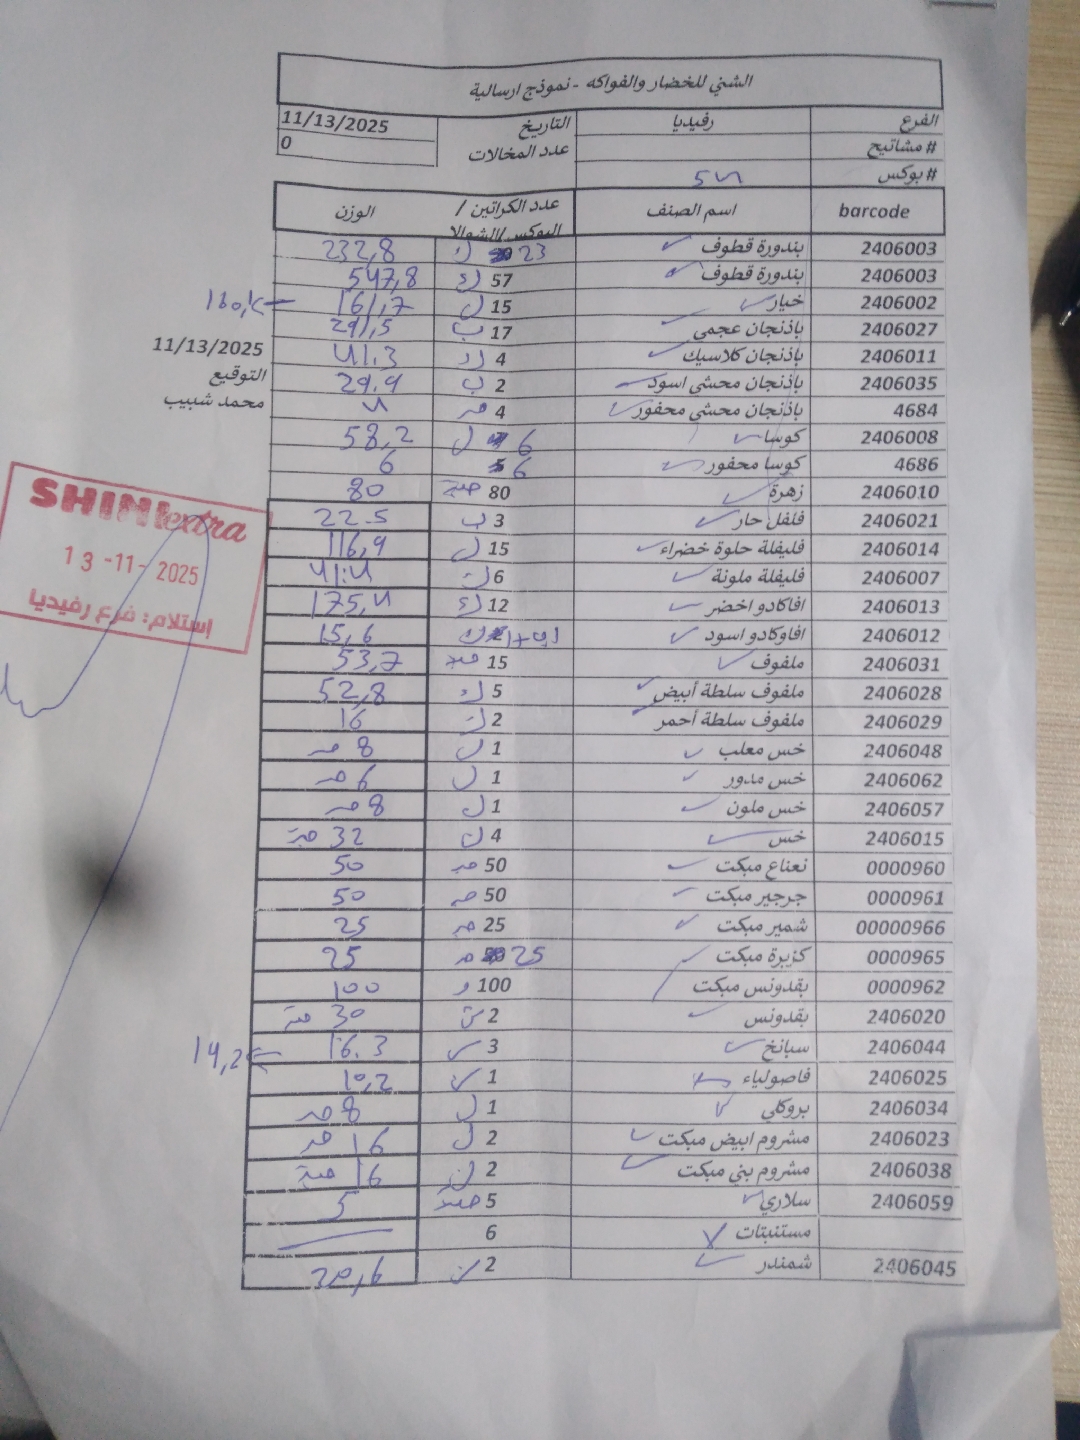 الشني للخضار والفواكه - نموذج ارسالية
الفرع رفيديا التاريخ 11/13/2025
# مشاتيح عدد المخالات 0
# بوكس 54
barcode اسم الصنف عدد الكراتين / البوكس/الشوالا الوزن
2406003 بندورة قطوف 23 ك 232,8
2406003 بندورة قطوف 57 547,8
2406002 خيار 15 ك 161,7
2406027 باذنجان عجمي 17 ب 291,5
2406011 باذنجان كلاسيك 4 41.3
2406035 باذنجان محشي اسود 2 ب 29.9
4684 باذنجان محشي محفور 4 4
2406008 كوسا 6 58,2
4686 كوسا محفور 6 6
2406010 زهرة 80 حبة 80
2406021 فلفل حار 3 ب 22.5
2406014 فليفلة حلوة خضراء 15 116,9
2406007 فليفلة ملونة 6 41.4
2406013 افاكادو اخضر 12 175,4
2406012 افاوكادو اسود 15,6
2406031 ملفوف 15 53,7
2406028 ملفوف سلطة أبيض 5 52,8
2406029 ملفوف سلطة أحمر 2 16
2406048 خس معلب 1 8
2406062 خس مدور 1 6
2406057 خس ملون 1 8
2406015 خس 4 32 حبة
0000960 نعناع مبكت 50 50
0000961 جرجير مبكت 50 50
00000966 شمير مبكت 25 25
0000965 كزبرة مبكت 25 25
0000962 بقدونس مبكت 100 100
2406020 بقدونس 2 30
2406044 سبانخ 3 16.3
14,2
2406025 فاصولياء 1 10,2
2406034 بروكلي 1 8
2406023 مشروم ابيض مبكت 2 16
2406038 مشروم بني مبكت 2 16 حبة
2406059 سلاري 5 5
مستنبتات 6
2406045 شمندر 2 20,6
11/13/2025
التوقيع
محمد شبيب
SHINI extra
13 -11- 2025
إستلام: فرع رفيديا